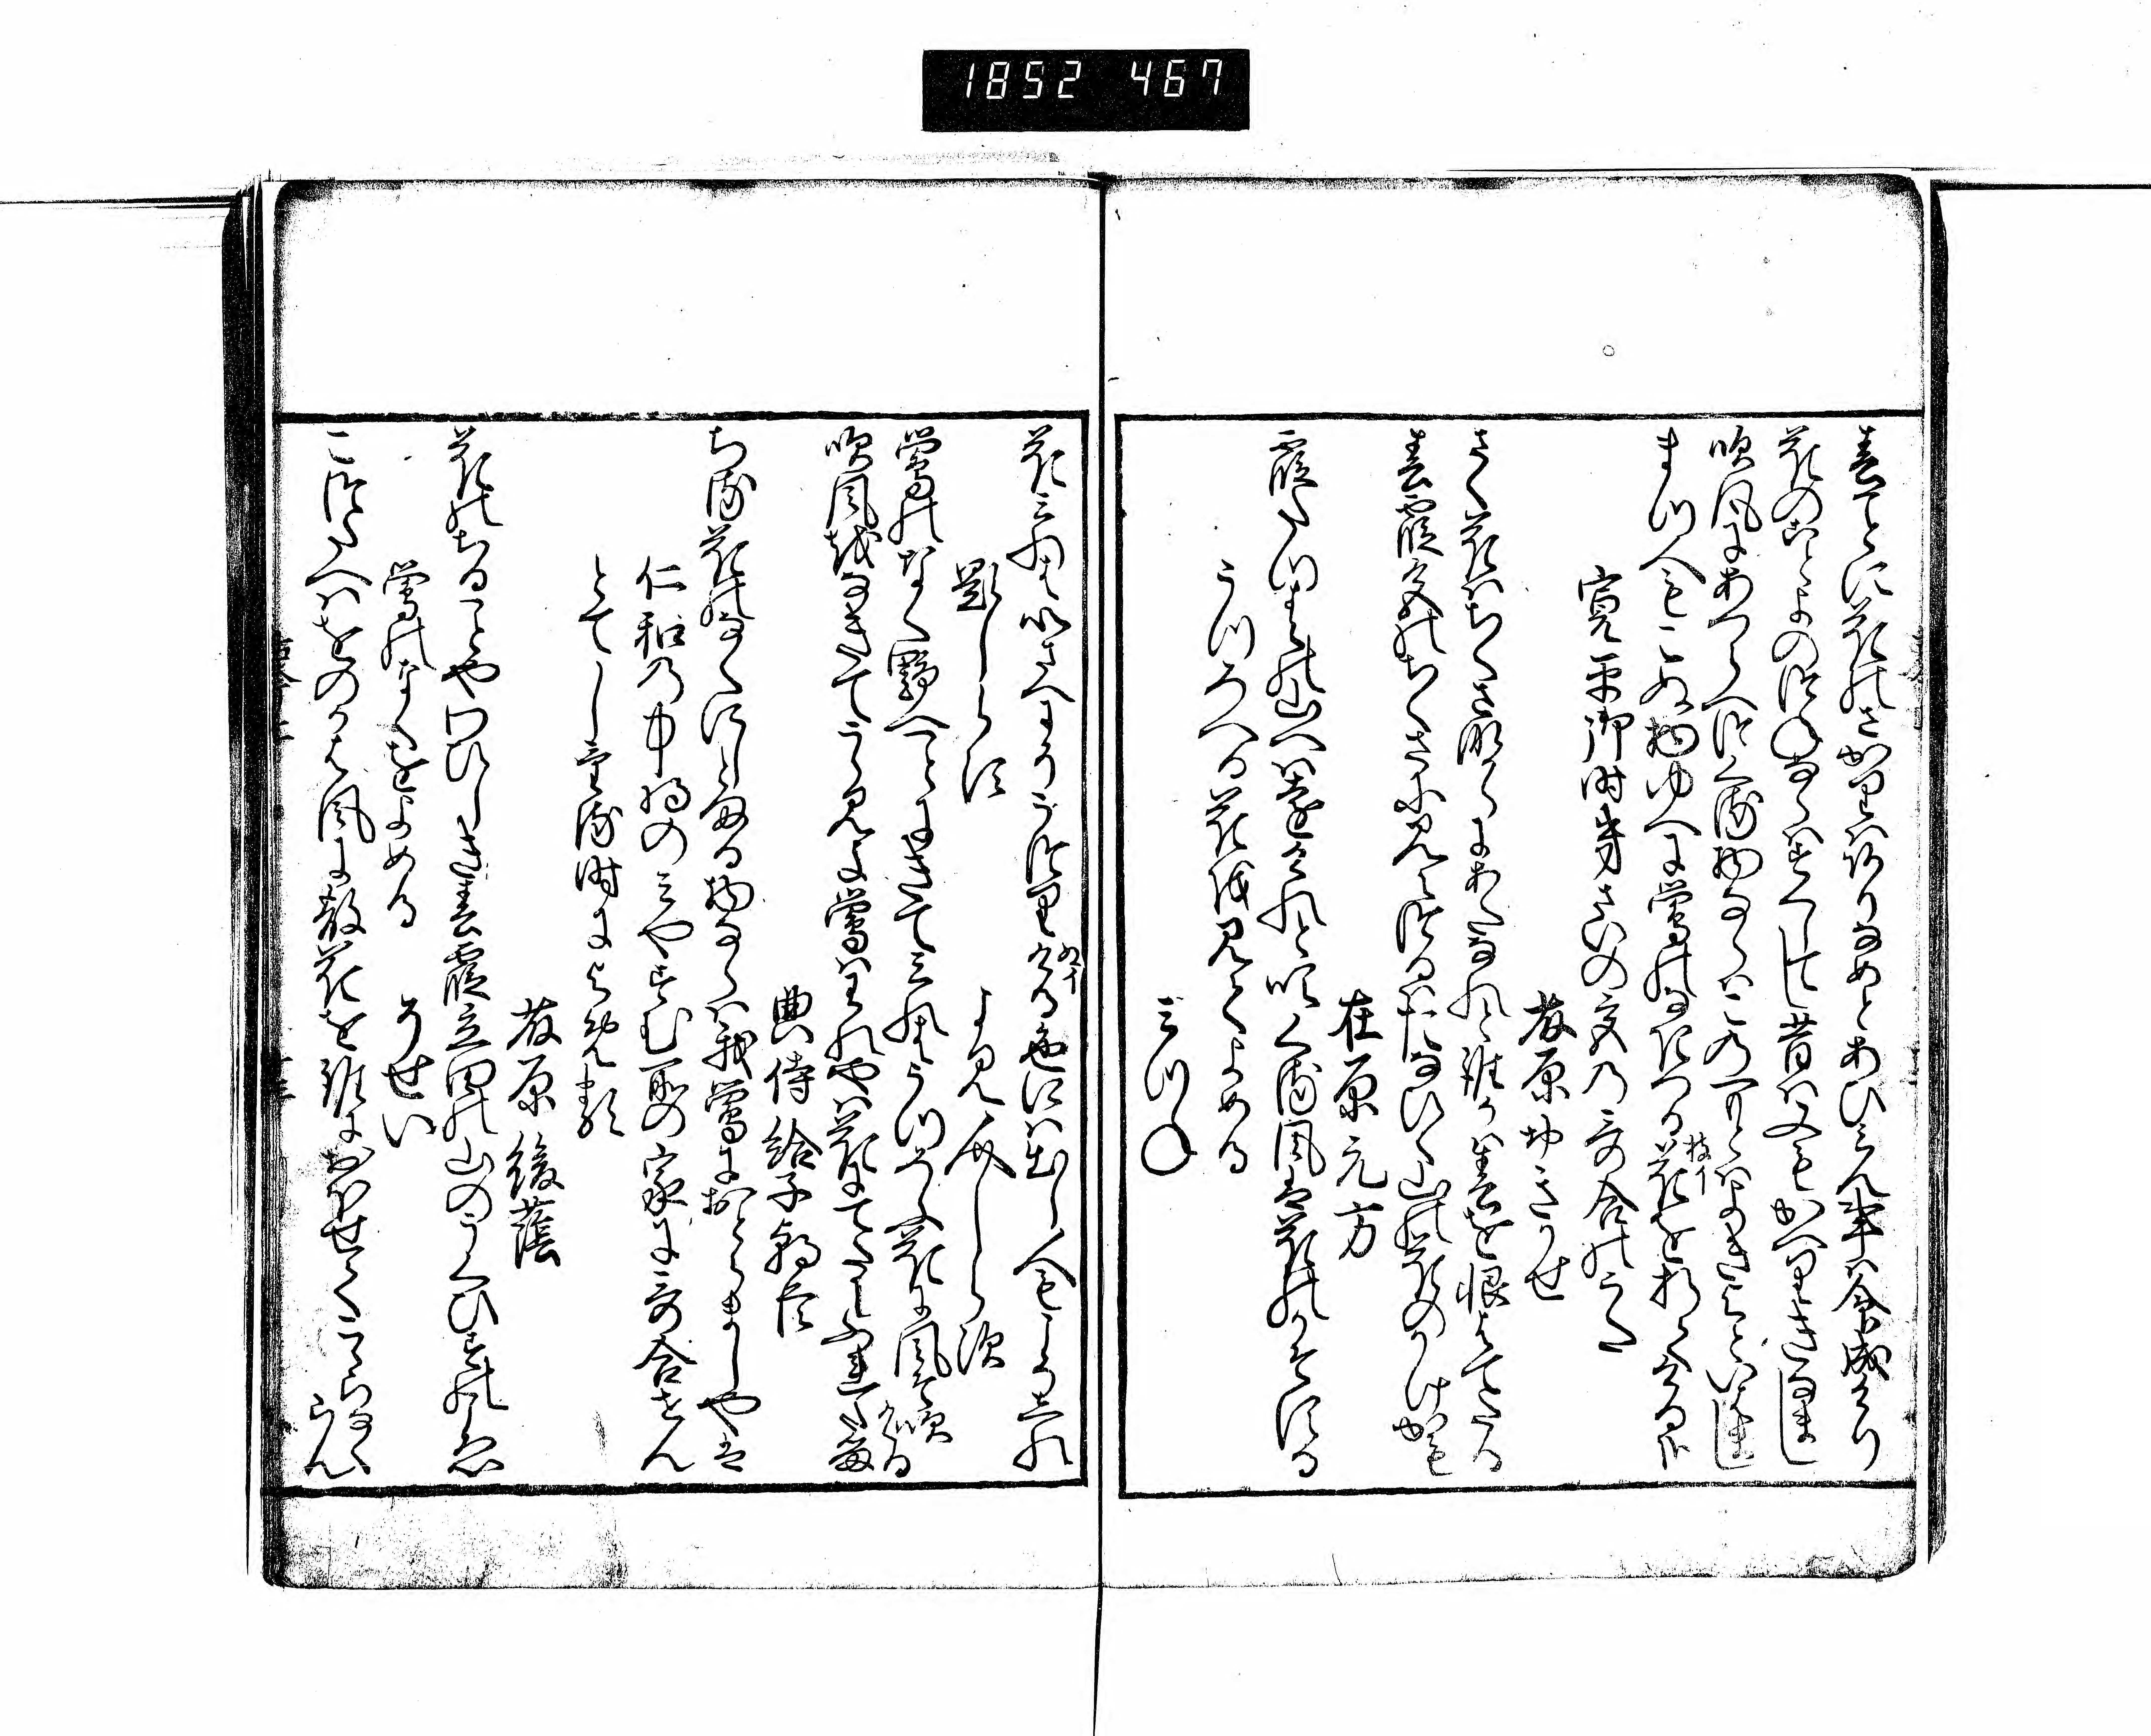 1852 467
春ことに花のさかりはありなめとあひみん事は命成けり
花のこと世のつねならはすくしてし昔は又もかへりきなまし
吹風にあつらへつくる物ならはこの一もとはよきよといはまし
まつ人もこぬ物ゆへに鶯のなきつる花を折てける哉
枝イ
寛平御時きさいの宮の哥合のうた
藤原おきかせ
さく花はちくさなからにあたなれと誰かは春を恨はてたる
春霞色のちくさに見えつるはたなひく山の花のかけかも
在原元方
霞たつ春の山へは遠けれと吹くる風は花のかそする
うつろへる花を見てよめる
みつね
花みれは心さへにそうつりける色にはいてし人もこそしれ
ぬイ
題しらす
よみ人しらす
鶯のなく野へことにきてみれはうつろふ花に風そ吹ける
吹風をなきてうらみよ鶯はわれやは花に手たにふれたる
典侍給子朝臣
ちる花のなくにしとまる物ならは我鶯におとらましやは
仁和の中将のみやすむ所の家に哥合せん
とてしける時によめる
藤原後蔭
花のちることやわひしき春霞立田の山のうくひすの声
鶯のなくをよめる
そせい
こつたへはをのかは風に散花を誰におほせてこゝらなく
らん